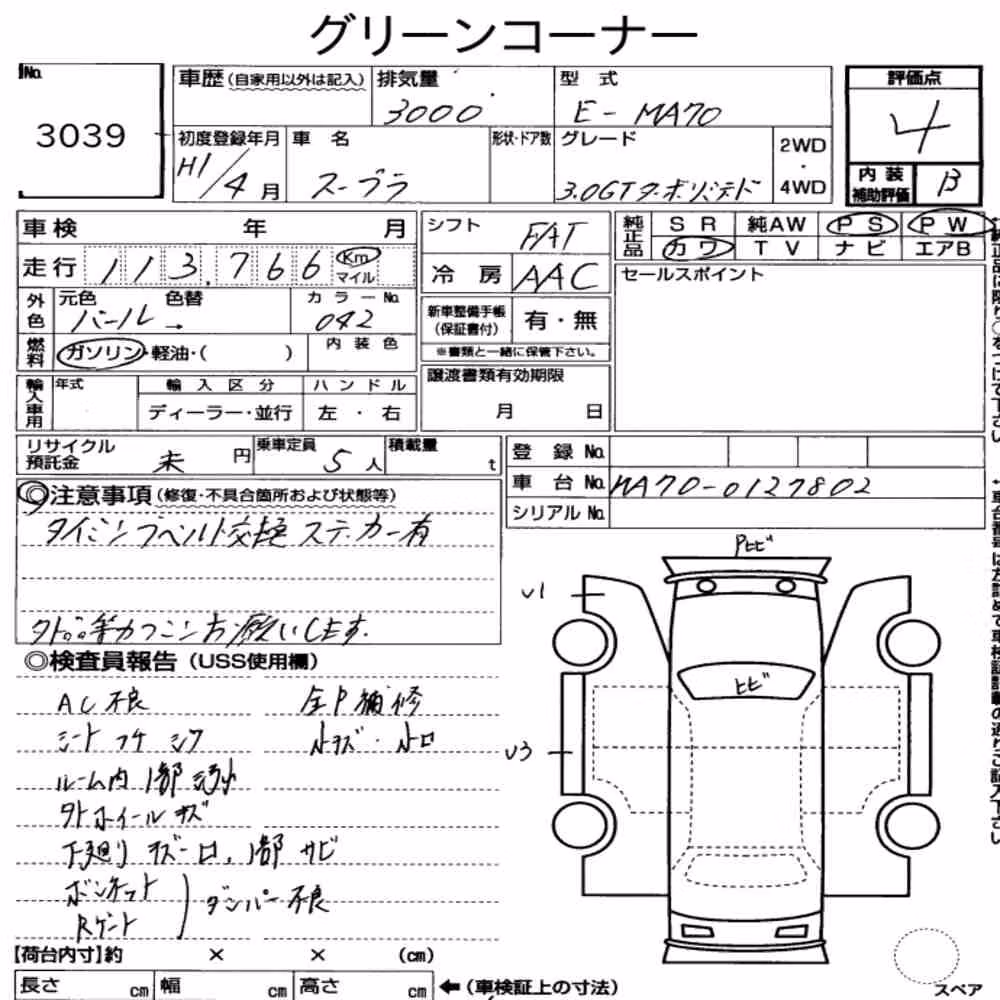 グリーンコーナー
No.
3039
車歴（自家用以外は記入）
排気量
3000
型 式
E-MA70
評価点
4
初度登録年月
H1/4月
車 名
スープラ
形状・ドア数
グレード
3.0GTターボリミテド
2WD
・
4WD
内装
補助評価
B
車検 年 月
走行 113,766 Km
マイル
シフト
FAT
冷房
AAC
純正品
SR 純AW PS PW
カワ TV ナビ エアB
外色
元色 色替
パール→
カラーNo.
042
燃料
ガソリン・軽油・( )
内装色
新車整備手帳
（保証書付）
有・無
※書類と一緒に保管下さい。
セールスポイント
輸入車用
年式
輸入区分
ディーラー・並行
ハンドル
左・右
譲渡書類有効期限
月 日
リサイクル
預託金
未 円
乗車定員
5人
積載量
t
登録No.
車台No. MA70-0127802
シリアルNo.
◎注意事項（修復・不具合箇所および状態等）
タイミングベルト交換 ステッカー有
◎検査員報告（USS使用欄）
AC不良
全P補修
シートコゲ シワ
小キズ・小凹
ルーム内1部汚れ
外ホイールキズ
下廻りキズ凹、1部サビ
ボンネット
Rゲート
ダンパー不良
Pヒビ
U1
ヒビ
U3
【荷台内寸】約 × × (cm)
長さ cm 幅 cm 高さ cm
←（車検証上の寸法）
スペア